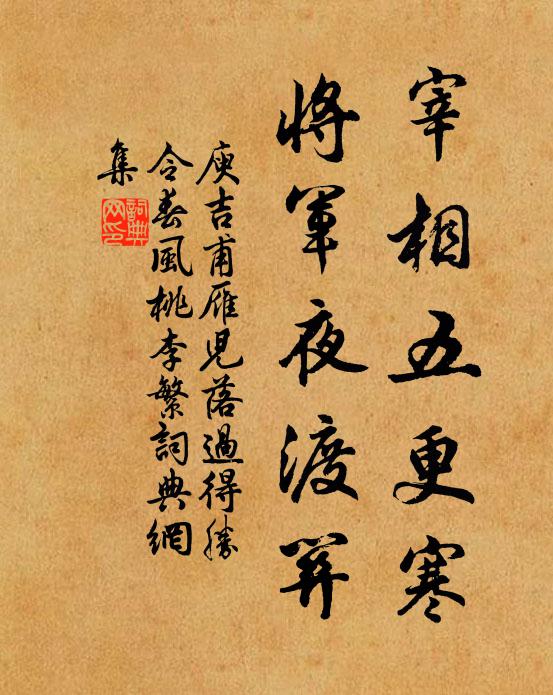 宰相五更寒
將軍夜渡關
庾吉甫雁兒落過得勝
令春風桃李繁詞典網
集
詞典
网印